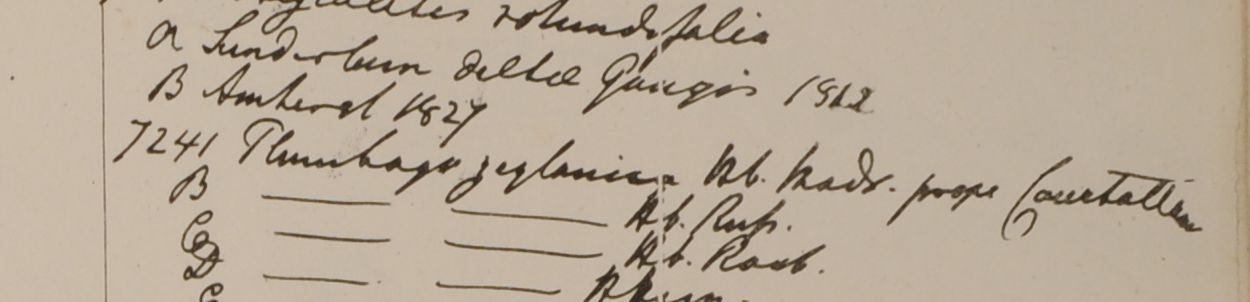 Aegialites rotundifolia
A Sunderbun deltae Gangis 1812
B Amherst 1827
7241 Plumbago zeylanica Hb. Madr. prope Courtallum
B ——— ——— Hb. Russ.
C ——— ——— Hb. Roxb.
D ——— ———
E